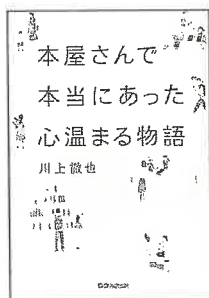 本屋さんで
本当にあった
心温まる物語
川上徹也